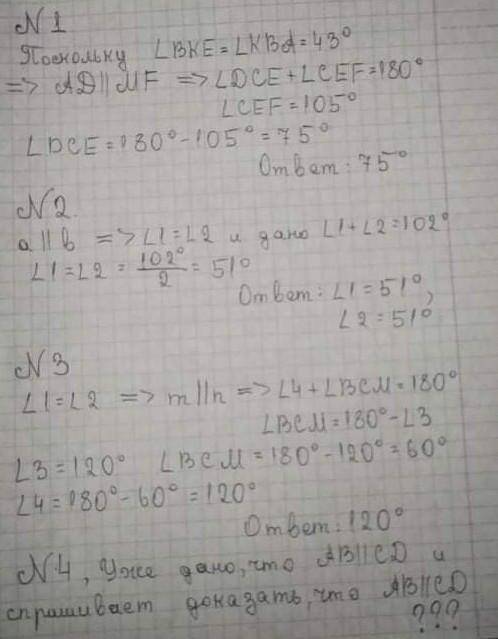 №1
Поскольку ∠BKE = ∠KBA = 43°
=> AD || MF => ∠DCE + ∠CEF = 180°
∠CEF = 105°
∠DCE = 180° - 105° = 75°
Ответ: 75°
№2
a || b => ∠1 = ∠2 и дано ∠1 + ∠2 = 102°
∠1 = ∠2 = 102°/2 = 51°
Ответ: ∠1 = 51°,
∠2 = 51°
№3
∠1 = ∠2 => m || n => ∠4 + ∠BCM = 180°
∠BCM = 180° - ∠3
∠3 = 120° ∠BCM = 180° - 120° = 60°
∠4 = 180° - 60° = 120°
Ответ: 120°
№4, Уже дано, что AB || CD и
спрашивает доказать, что AB || CD
???